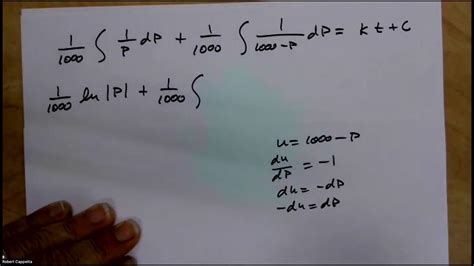 1/1000 ∫ 1/P dP + 1/1000 ∫ 1/(1000-P) dP = kt + C
1/1000 ln |P| + 1/1000 ∫
u = 1000 - P
du/dP = -1
du = -dP
-du = dP
Robert Cappetta